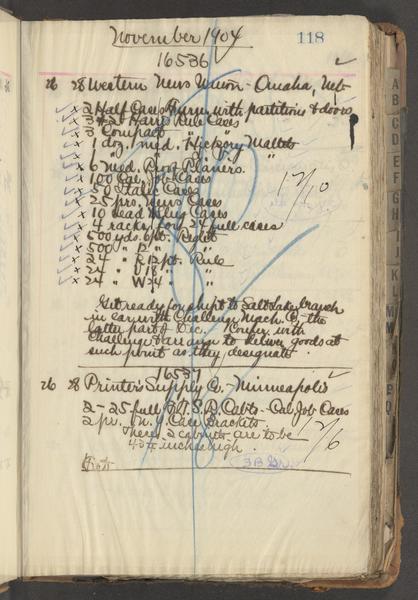 November 1904
118
16536
26 28 Western News Union - Omaha, Neb
2 Half Cases with partitions & doors
Rule Cases
3 Compact " "
1 doz. med. Hickory Mallets
" " "
6 med. Proof Planers
100 Cal. Job Cases
50 Italic Cases
25 prs. News Cases
10 Lead & Slug Cases
4 racks for 24 full cases
500 yds. 6pt. Reglet
500 " " "
24 " 12pt. Rule
24 " " "
24 " " "
12/10
Get ready for shipt to Salt Lake branch
in car with Challenge Mach. Co. the
latter part of Dec. Confer with
Challenge & arrange to deliver goods at
such point as they designate.
16537
26 28 Printers Supply Co. - Minneapolis
2 - 25-full Cabts - Cal. Job Cases
2 pr. N. Y. Case Brackets.
These 2 cabinets are to be
inches high.
A
B
C
D
E
F
G
H
I
J
K
L
M